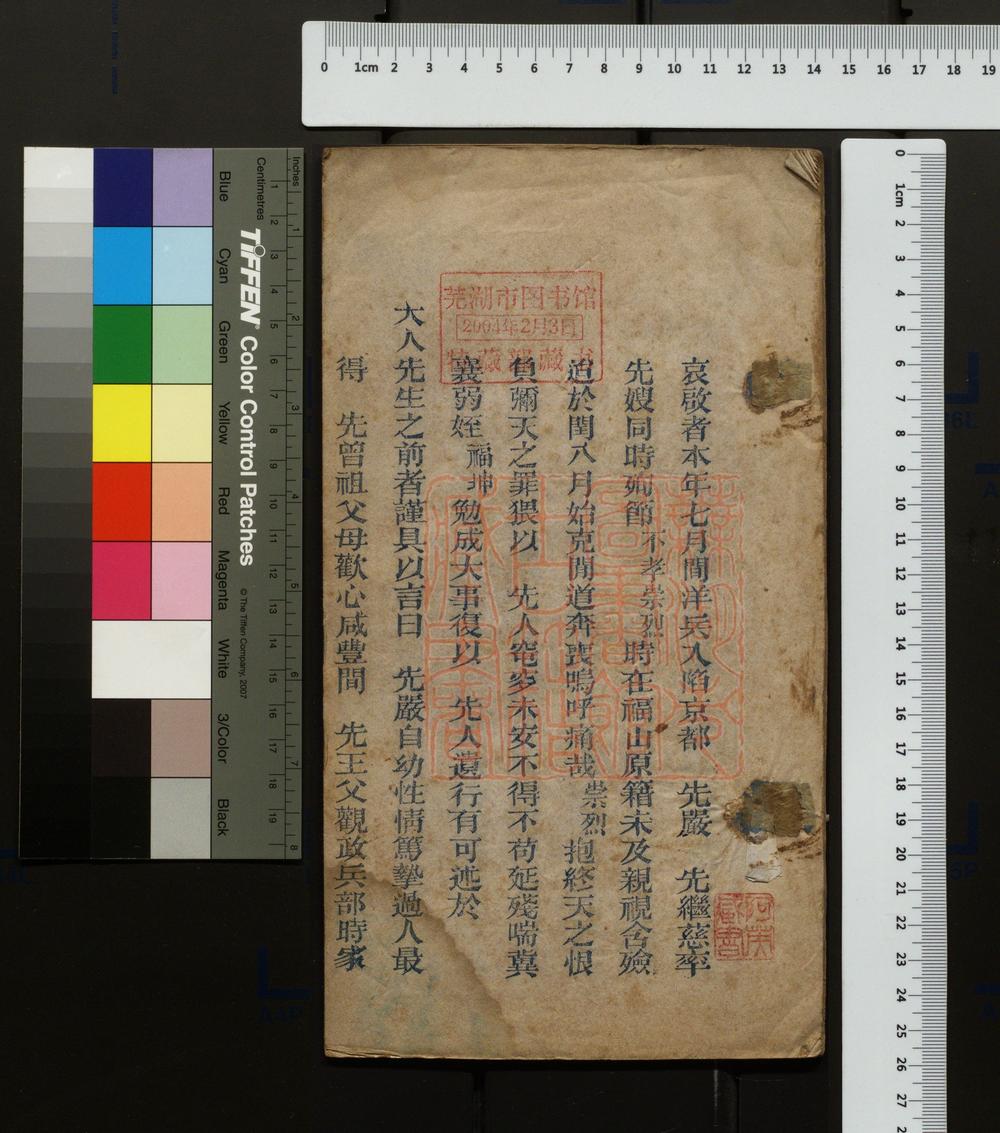 哀啟者本年七月間洋兵入陷京都　先嚴　先繼慈率
先嫂同時殉節不孝崇烈時在福山原籍未及親視含殮
迨於閏八月始克間道奔喪嗚呼痛哉崇烈抱終天之恨
負彌天之罪猥以　先人窀穸未安不得不苟延殘喘冀
襄弱姪福坤勉成大事復以　先人遺行有可述於
大人先生之前者謹具以言曰　先嚴自幼性情篤摯過人最
得　先曾祖父母歡心咸豐間　先王父觀政兵部時家
芜湖市图书馆
2004年2月3日
阿英
藏書
0 1cm 2 3 4 5 6 7 8 9 10 11 12 13 14 15 16 17 18 19
0 1cm 2 3 4 5 6 7 8 9 10 11 12 13 14 15 16 17 18 19 20 21 22 23 24 25 26 27
Inches 1 2 3 4 5 6 7 8
Centimetres 1 2 3 4 5 6 7 8 9 10 11 12 13 14 15 16 17 18 19
TIFFEN® Color Control Patches
© The Tiffen Company, 2007
Blue
Cyan
Green
Yellow
Red
Magenta
White
3/Color
Black